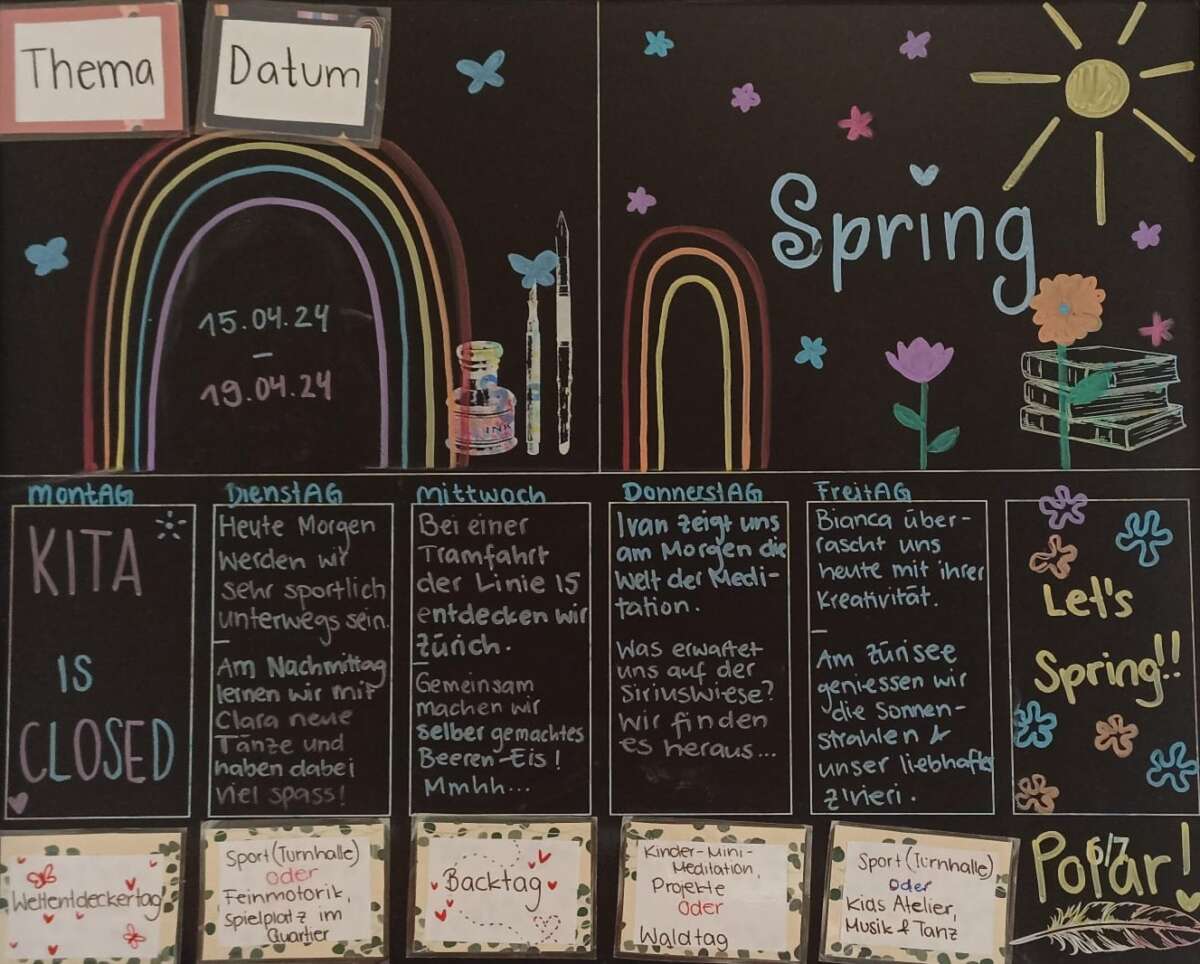 Thema
Datum
15.04.24
–
19.04.24
INK
Spring
MontAG
KITA
IS
CLOSED
DienstAG
Heute Morgen
werden wir
sehr sportlich
unterwegs sein.
–
Am Nachmittag
lernen wir mit
Clara neue
Tänze und
haben dabei
viel spass!
Mittwoch
Bei einer
Tramfahrt
der Linie 15
entdecken wir
Zürich.
–
Gemeinsam
machen wir
selber gemachtes
Beeren-Eis!
Mmhh...
DonnerstAG
Ivan zeigt uns
am Morgen die
Welt der Medi-
tation.
Was erwartet
uns auf der
Siriuswiese?
Wir finden
es heraus...
FreitAG
Bianca über-
rascht uns
heute mit ihrer
Kreativität.
–
Am Zürisee
geniessen wir
die Sonnen-
strahlen &
unser liebhaftes
Zivieri.
Let's
Spring!!
Weltentdeckertag
Sport (Turnhalle)
oder
Feinmotorik,
Spielplatz im
Quartier
Backtag
Kinder-Mini-
Meditation,
Projekte
Oder
Waldtag
Sport (Turnhalle)
Oder
Kids Atelier,
Musik & Tanz
6/7